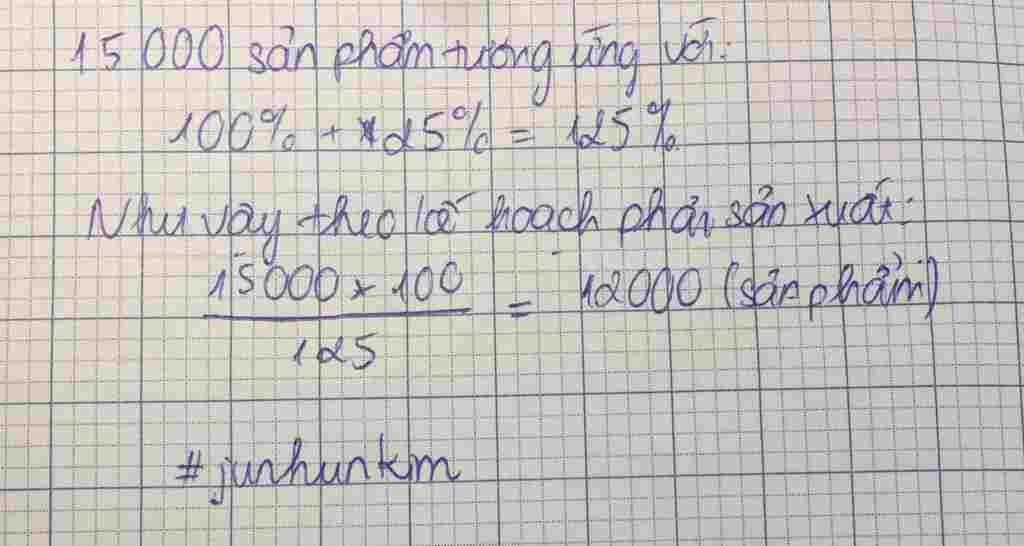 15 000 sản phẩm tương ứng với:
100% + 25% = 125%
Như vậy theo kế hoạch phải sản xuất:
15000 x 100
———— = 12000 (sản phẩm)
125
#junhunkm